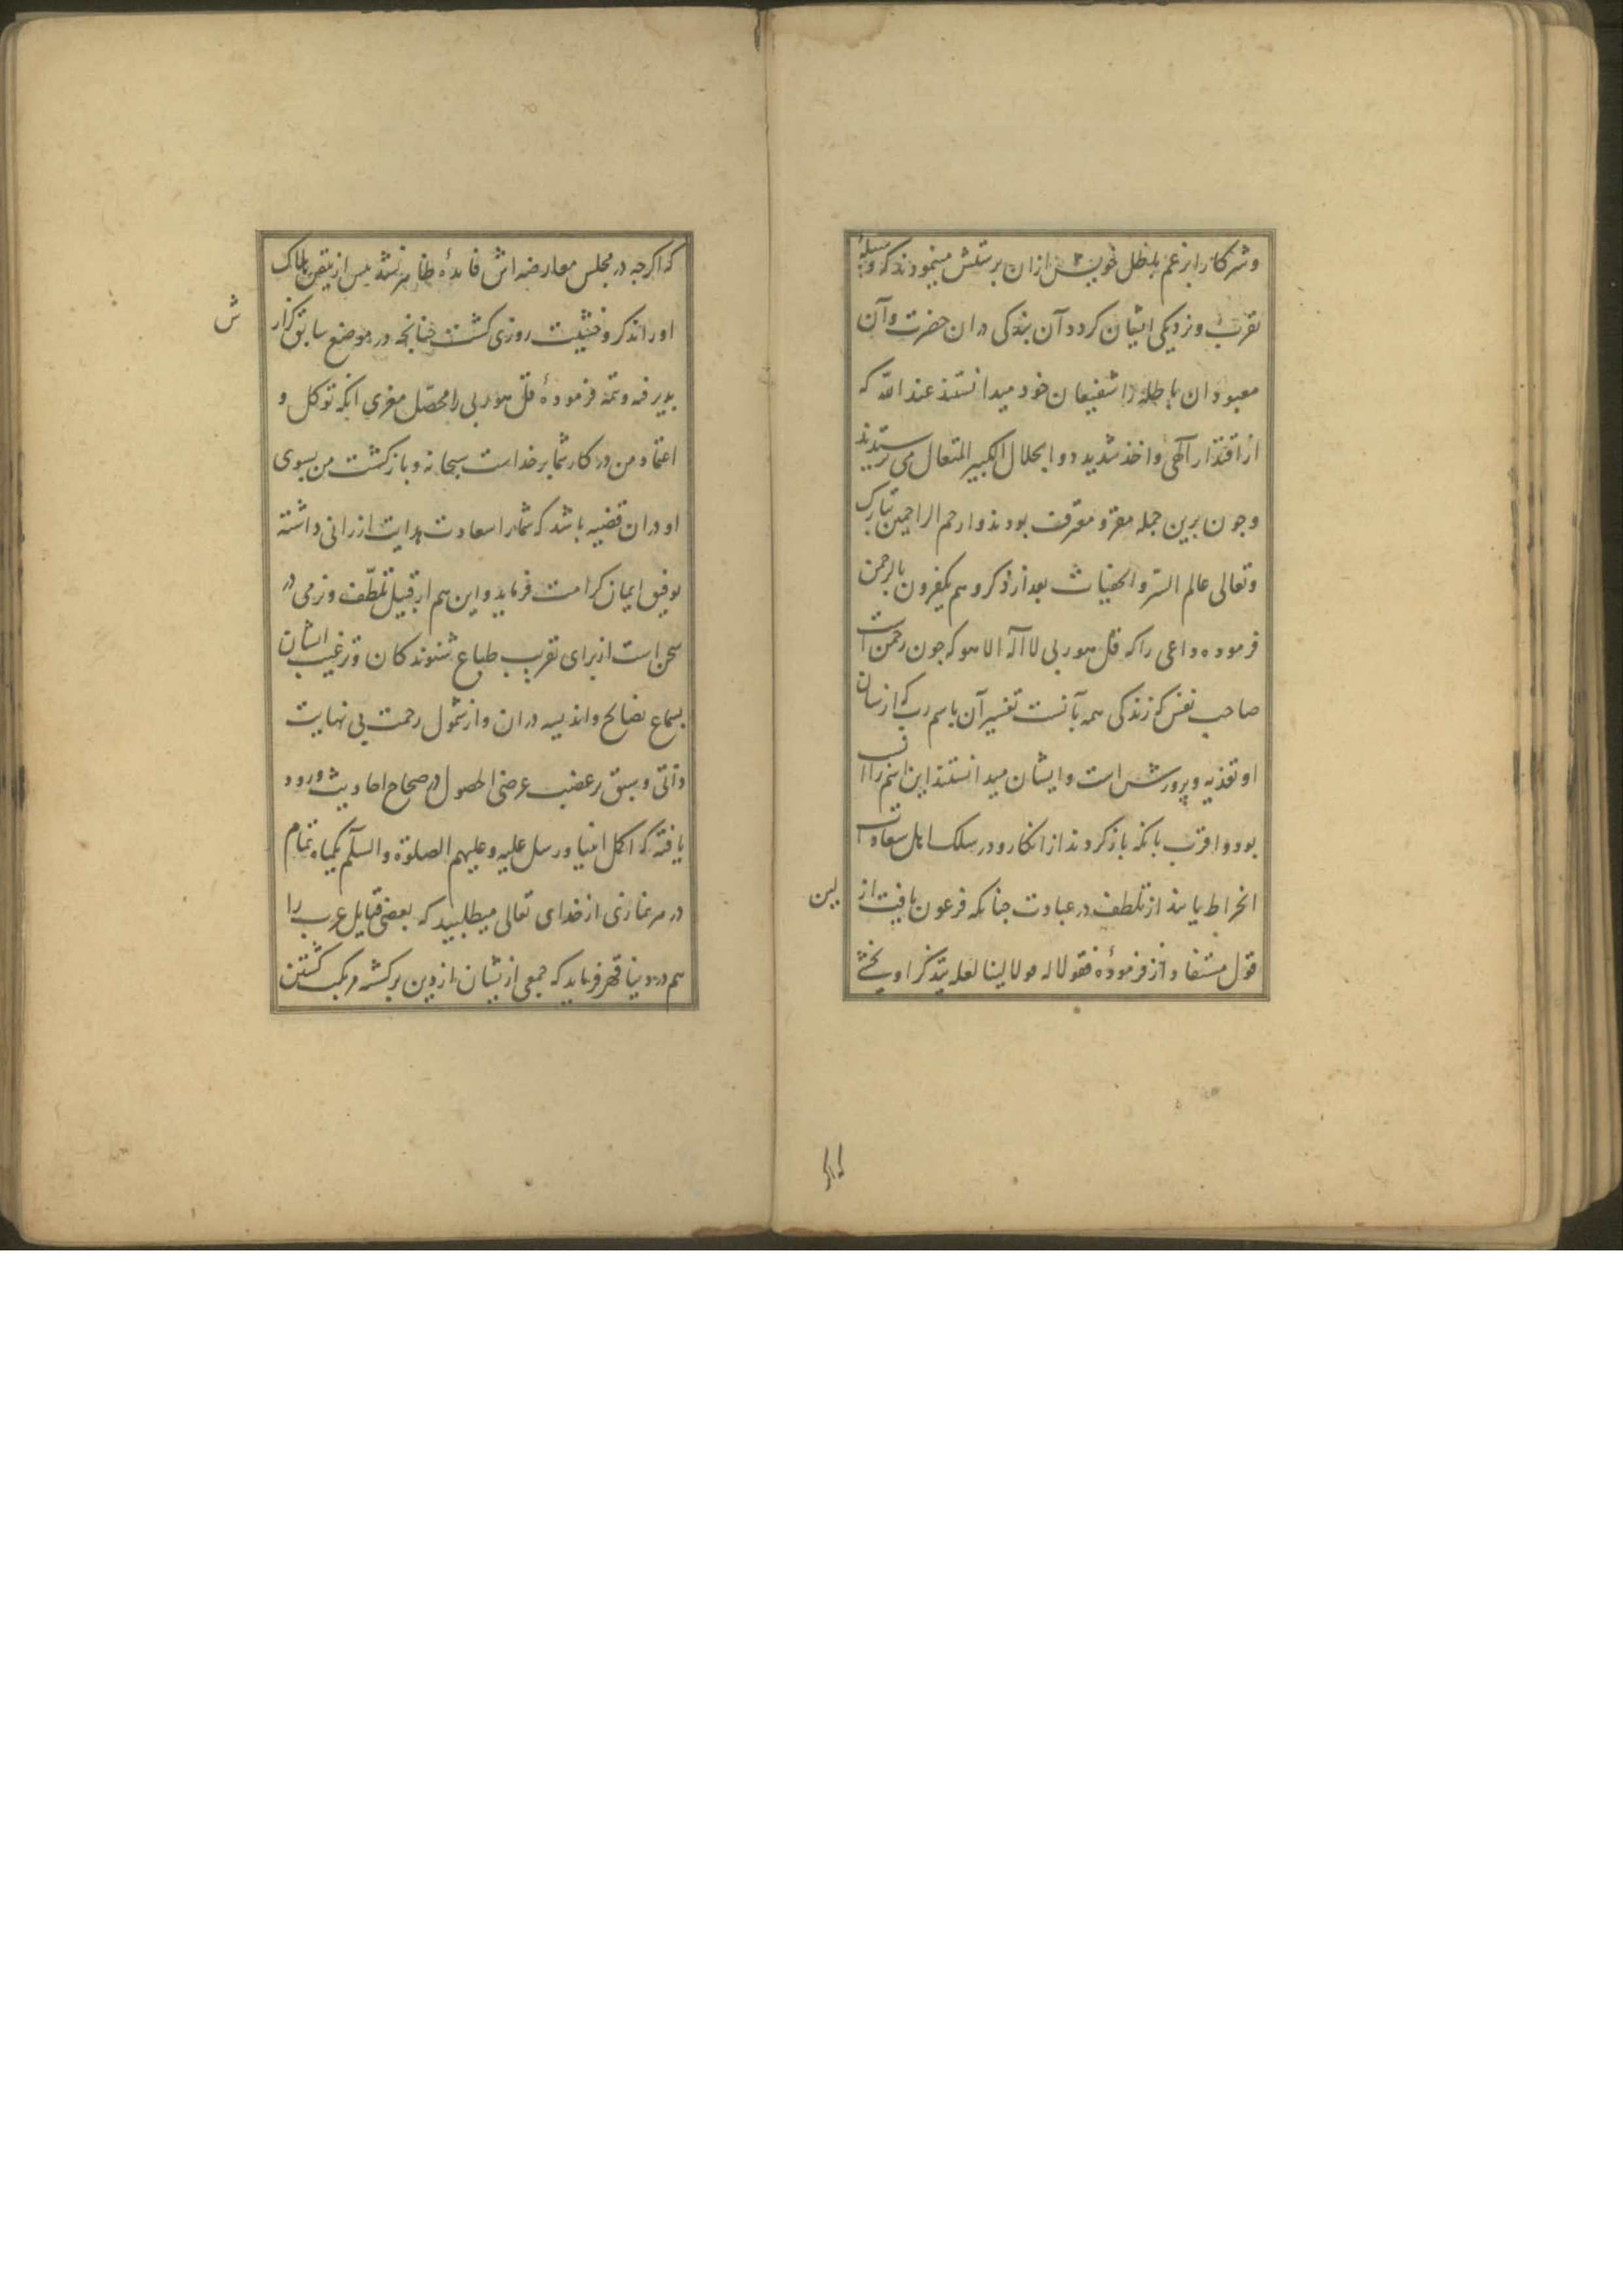 و شرکا را بزعم باطل خویش ازان پرستش مینمودند که وسیلهٔ
تقرب و نزدیکی ایشان کردد آن بندکی دران حضرت و آن
معبودان باطله را شفیعان خود میدانستند عند الله که
از اقتدار آلهی و اخذ شدید ذو الجلال الکبیر المتعال می ترسیدند
و جون برین جمله مقر و معترف بودند و ارحم الراحمین تبارک
و تعالی عالم السّر و الخفیات بعد از ذکر و هم یکفرون بالرحمن
فرموده داعی را که قل هو ربی لا آله الا هو که جون رحمن است
صاحب نفس که زندکی همه بآنست تفسیر آن باسم رب که از شان
او تغذیه و پرورش است و ایشان میدانستند این اسم را انسب
بود و اقرب بانکه باز کردند از انکار و در سلک اهل سعادت
انخراط یابند از تلطف در عبارت جنانکه فرعون یافت از
لین
قول مستفاد از فرمودهٔ فقولا له قولا لینا لعله یتذکر او یخشی
که اکرجه در مجلس معارضه اش فایدهٔ ظاهر نشد پس از تیقن بهلاک
اورا تذکر و خشیت روزی کشت جنانجه در موضع سابق کزارش
پذیرفه و تتمه فرمودهٔ قل هو ربی را محصّل مغزی آنکه توکل و
اعتماد من در کار شما بر خداست سبحانه و بازکشت من بسوی
او دران قضیه باشد که شمارا سعادت هدایت ارزانی داشته
توفیق ایمان کرامت فرماید و این هم از قبیل تلطّف و نرمی در
سخن است از برای تقریب طباع شنوندکان و ترغیب ایشان
بسماع نصایح و اندیشه دران و از شمول رحمت بی نهایت
ذاتی و سبق بر غضب عرضی الحصول در صحاح احادیث ورود
یافته که اکمل انبیا و رسل علیه و علیهم الصلوة و السلم یکماه تمام
در هر نمازی از خدای تعالی میطلبید که بعضی قبایل عرب را
هم در دنیا قهر فرماید که جمعی ازیشان از دین برکشته مرتکب کشتن